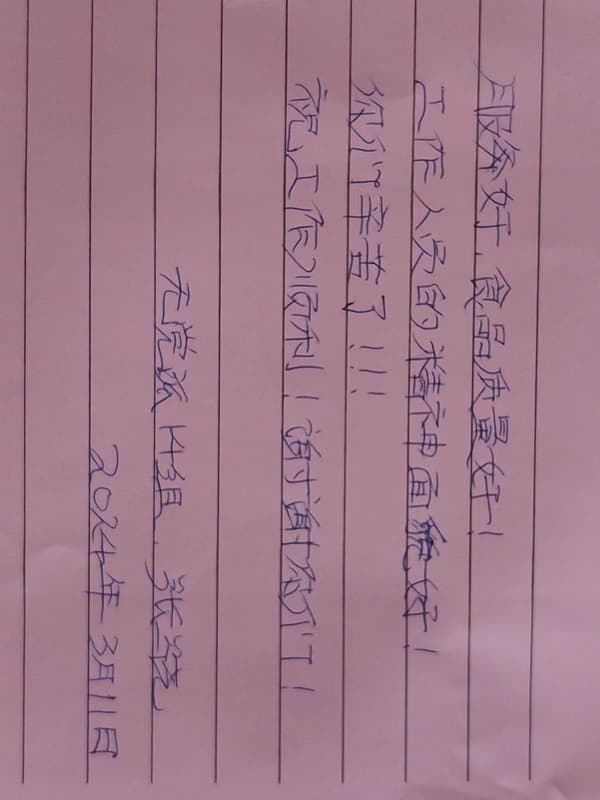 服务好，食品质量好！
工作人员的精神面貌好！
你们辛苦了！！！
祝工作顺利！谢谢你们！
无党派H组，张绕
2024年3月11日